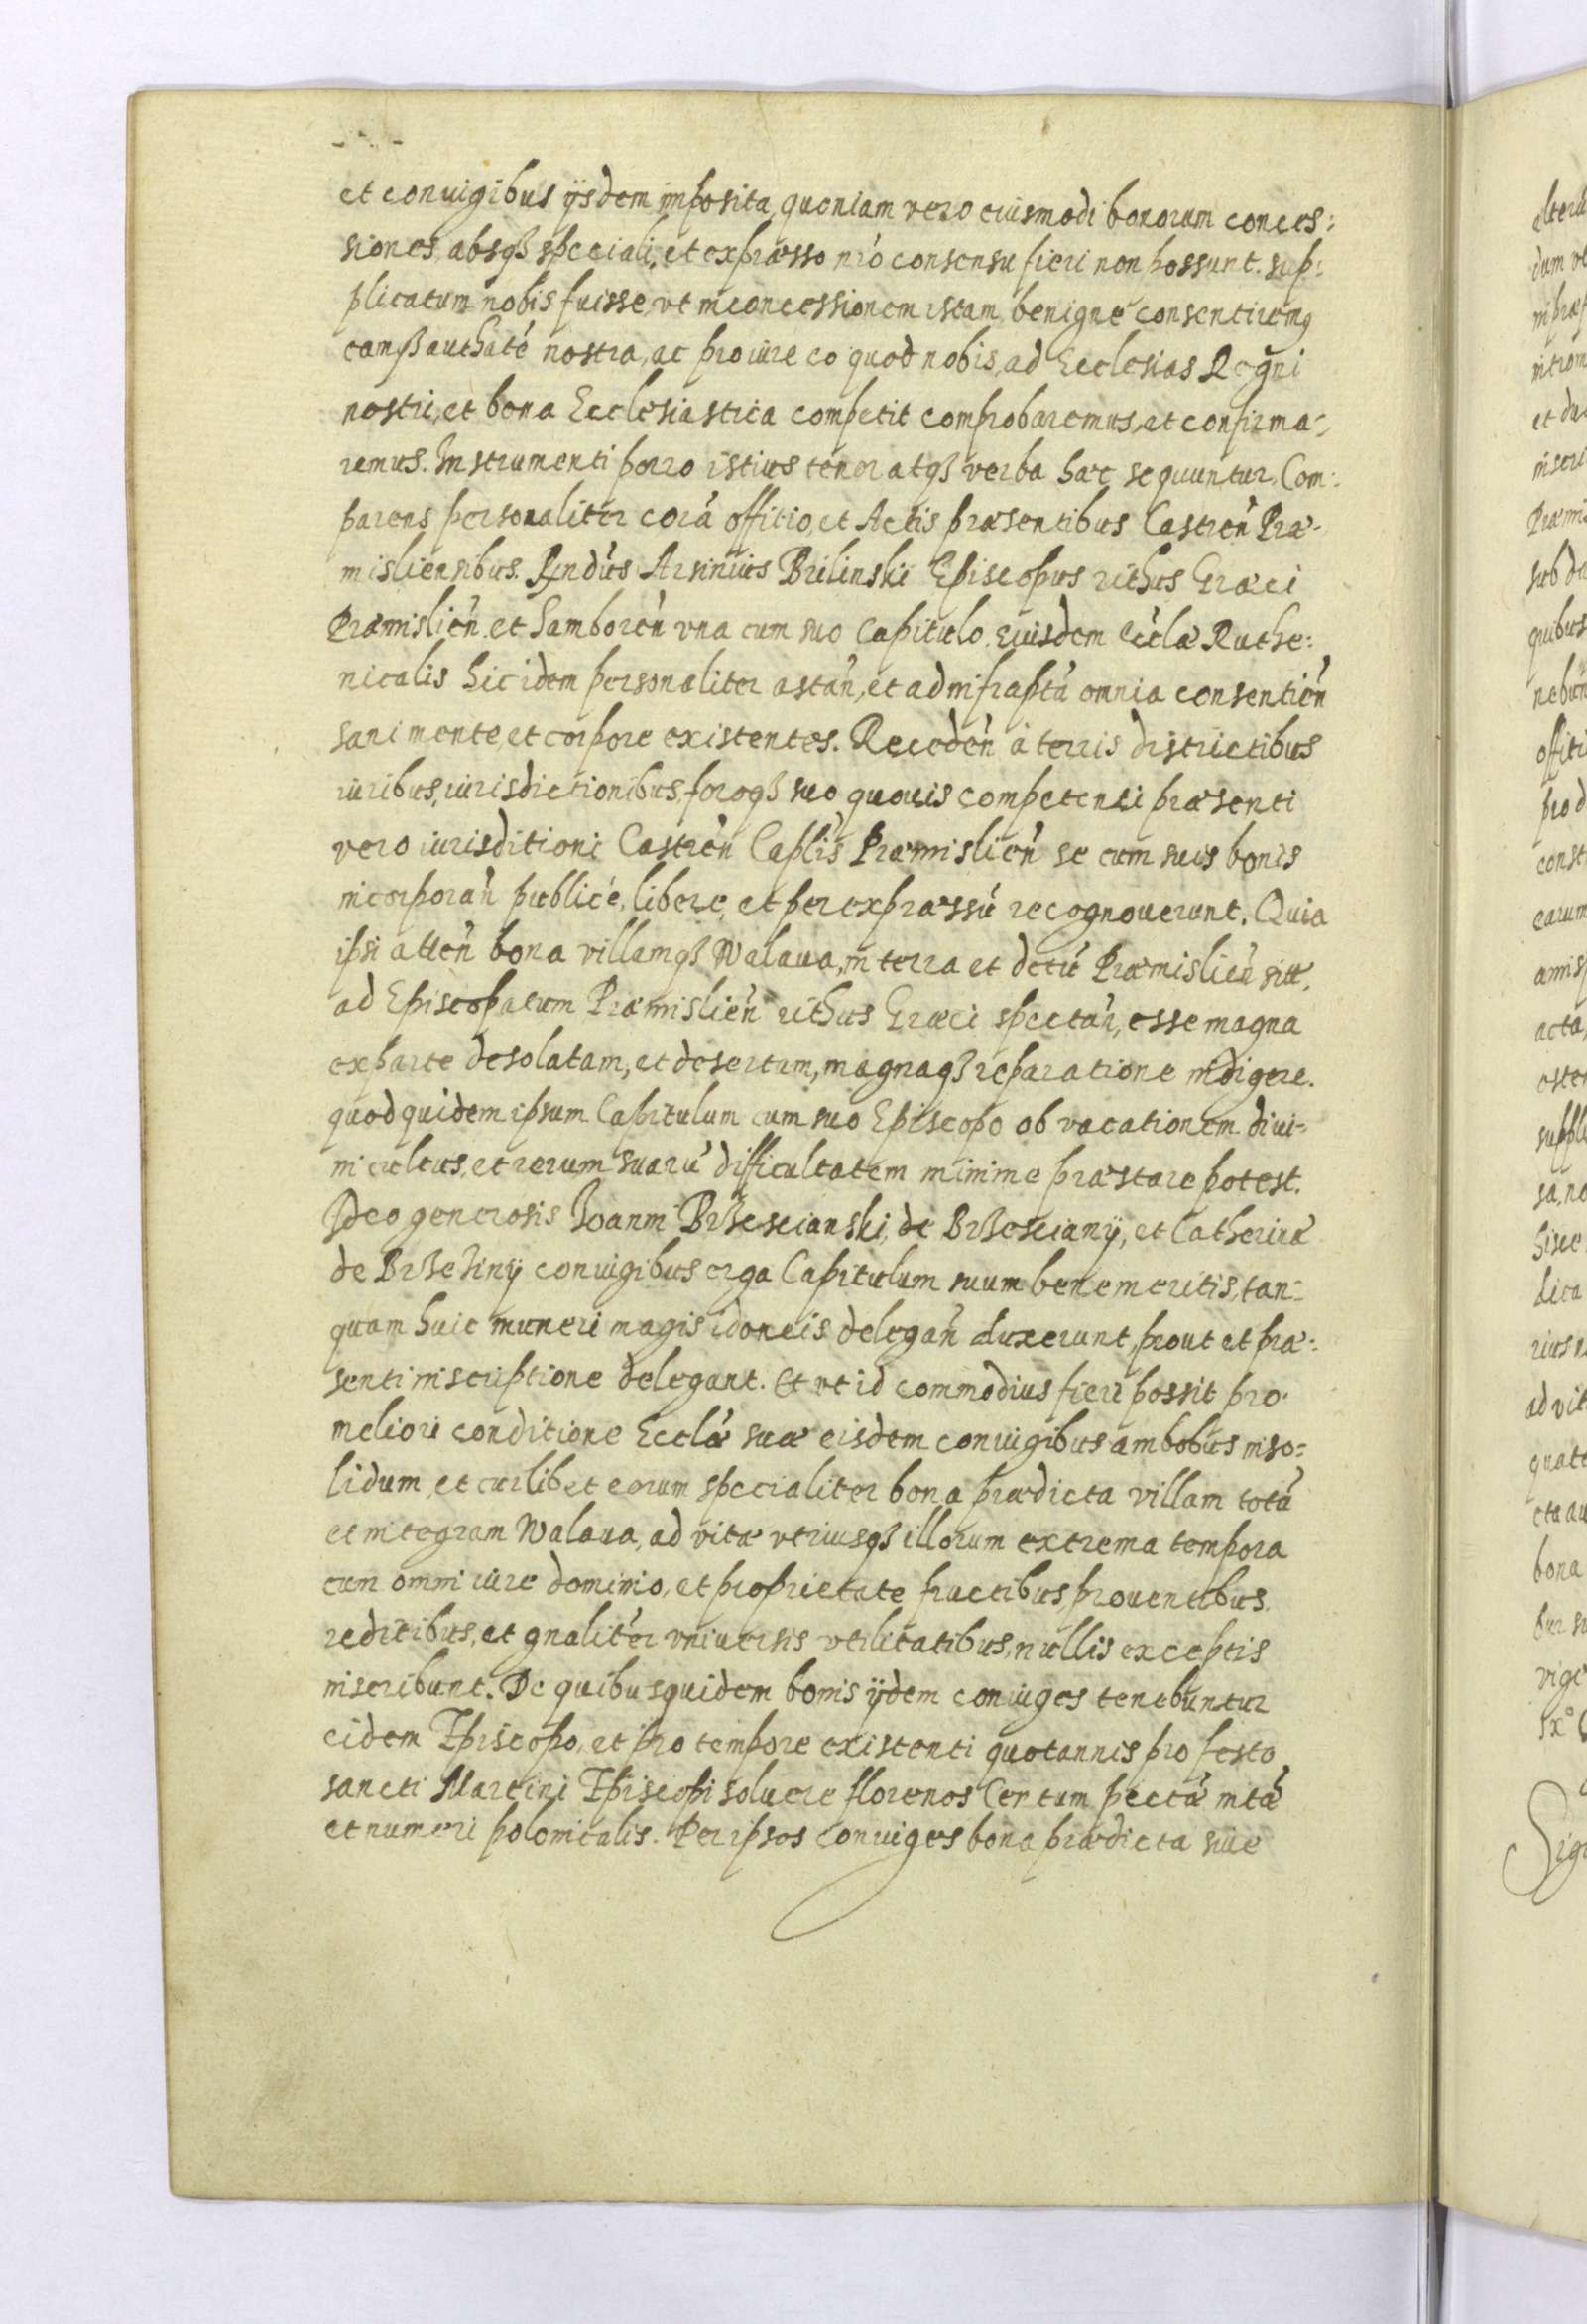 et coniugibus ijsdem imposita, quoniam vero eiusmodi bonorum conces:
siones, absq3 speciali, et expræsso nr̃o consensu fieri non possunt. sup:
plicatum nobis fuisse, vt in concessionem istam benigne consentirem9
eamq3 authãte nostra, ac pro iure eo quod nobis, ad Ecclesias Regni
nostri, et bona Ecclesiastica competit comprobaremus, et confirma:
remus. Instrumenti porro istius tenor atq3 verba hæc sequuntur. Com:
parens personaliter corã offitio, et Actis præsentibus Castreñ Præ:
misliensibus. Rñdus Arsinius Brilinski Episcopus rithus Græci
Præmislieñ et Samboreñ vna cum suo Capitulo. euisdem Eclæ Ruthe:
nicalis hic idem personaliter astañ, et ad infraptã omnia consentieñ
sani mente, et corpore existentes. Recedeñ à terris districtibus
iuribus, iurisdictionibus, foroq3 suo quouis competenti præsenti
vero iurisditioni Castreñ Caplis Præmislieñ se cum suis bonis
incorporañ publicè, libere, et per expræssũ recognouerunt. Quia
ipsi atteñ bona villamq3 Walaua, in terra et dctũ Præmislieñ sitt,
ad Episcopatum Præmislieñ rithus Græci spectañ, esse magna
ex parte desolatam, et desertam, magnaq3 reparatione indigere.
quod quidem ipsum Capitulum cum suo Episcopo ob vacationem diui:
ni cultus, et rerum suarũ difficultatem minime præstare potest.
Ideo generosis Ioanni Brzescianski, de Brzesciany, et Catherinæ
de Brzeziny coniugibus erga Capitulum suum bene meritis, tan:
quam huic muneri magis idoneis delegañ duxerunt, prout et præ:
senti inscriptione delegant. Et vt id commodius fieri possit pro
meliori conditione Ecclæ suæ eisdem coniugibus ambobus in so:
lidum, et cuilibet eorum specialiter bona prædicta villam totã
et integram Walaua, ad vitæ vtriusq3 illorum extrema tempora
cum omni iure dominio, et proprietate fructibus, prouentibus.
reditibus, et gnaliter vniuersis vtilitatibus, nullis exceptis
inscribunt. De quibusquidem bonis ijdem coniuges tenebuntur
eidem Episcopo, et pro tempore existenti quotannis pro festo
sancti Martini Episcopi soluere florenos Centum pectã mtã
et numeri polonicalis. Per ipsos coniuges bona prædicta siue